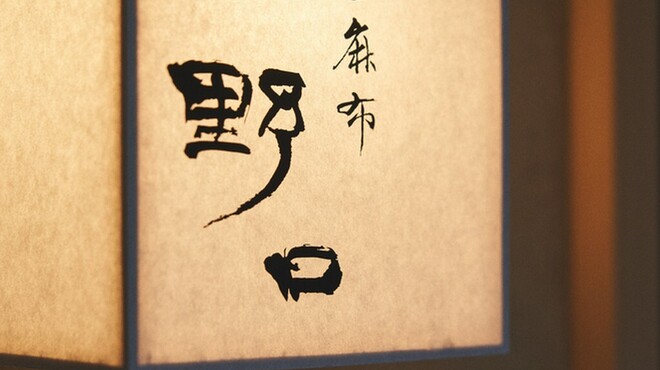 麻布
野口